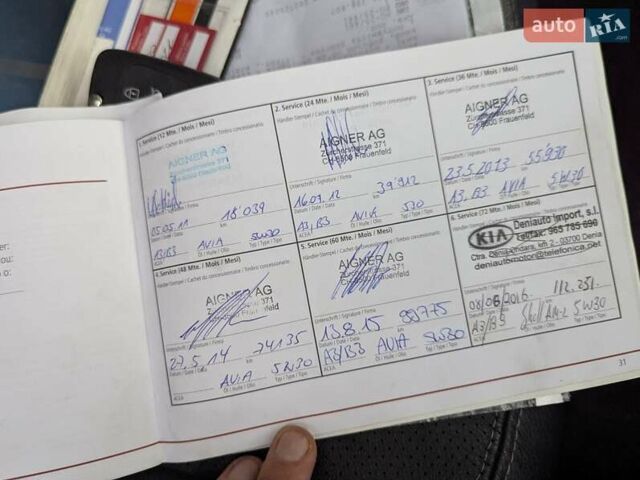 auto RIA
.com
1. Service (12 Mte. / Mois / Mesi)
Händler-Stempel / Cachet du concessionnaire / Timbro concessionario
AIGNER AG
Zürcherstrasse 371
Unterschrift / Signature / Firma
05.05.11 18'039
Datum / Date / Data km
A3/B3 AVIA 5W30
ACEA Öl / Huile / Olio Typ / Type / Tipo
2. Service (24 Mte. / Mois / Mesi)
Händler-Stempel / Cachet du concessionnaire / Timbro concessionario
AIGNER AG
Zürcherstrasse 371
CH-8500 Frauenfeld
Unterschrift / Signature / Firma
16.09.12 39'912
Datum / Date / Data km
A3/B3 AVIA 530
ACEA Öl / Huile / Olio Typ / Type / Tipo
3. Service (36 Mte. / Mois / Mesi)
Händler-Stempel / Cachet du concessionnaire / Timbro concessionario
AIGNER AG
Zürcherstrasse 371
CH-8500 Frauenfeld
Unterschrift / Signature / Firma
23.5.2013 55'838
Datum / Date / Data km
A3.B3 AVIA 5W30
ACEA Öl / Huile / Olio Typ / Type / Tipo
4. Service (48 Mte. / Mois / Mesi)
Händler-Stempel / Cachet du concessionnaire / Timbro concessionario
AIGNER AG
Unterschrift / Signature / Firma
27.5.14 74135
Datum / Date / Data km
AVIA 5W30
ACEA Öl / Huile / Olio Typ / Type / Tipo
5. Service (60 Mte. / Mois / Mesi)
Händler-Stempel / Cachet du concessionnaire / Timbro concessionario
AIGNER AG
Unterschrift / Signature / Firma
13.8.15
Datum / Date / Data km
A3/B3 AVIA 5W30
ACEA Öl / Huile / Olio Typ / Type / Tipo
6. Service (72 Mte. / Mois / Mesi)
KIA Deniauto Import, s.l.
Telfax: 965 785 690
03700 Denia
deniautomotor@telefonica.net
08/06/2016 112.251.
Datum / Date / Data km
A3/B3 Shell 5W30
ACEA Öl / Huile / Olio Typ / Type / Tipo
31